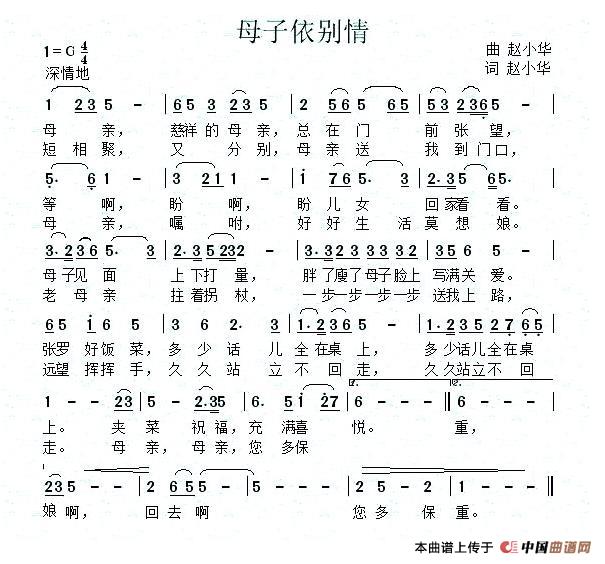 母子依别情
1=G 4/4
曲 赵小华
深情地
词 赵小华
1 23 5 - | 65 3 23 5 | 2 56 5 65 | 53 236 5 - |
母 亲, 慈祥的母亲,总在门 前张望,
短相聚, 又 分别,母亲送 我到门口,
5. 6 1 - | 3 21 1 - | i 76 5. 3 | 2.3 5 65. |
等 啊, 盼 啊, 盼儿女 回家看看。
母 亲, 嘱 咐, 好好生活莫想娘。
3.2 3 3 6 5. 3 | 2.3 5 232 - |
母子见面 上下打量, 胖了瘦了母子脸上写满关爱。
老母亲 拄着拐杖, 一步一步一步一步送我上路,
张罗好饭菜,多少话儿全在桌上,多少话儿全在桌
远望挥挥手,久久站立不回走,久久站立不回
1 - - 23 | 5 - - 2.35 | 6. 5 i 27 | 6 - - - || 6 - - - |
上。 夹菜祝福,充满喜悦。 重,
走。 母亲,母亲,您多保
23 5 - - | 2 65 5 - | 5 - - - | 5 - - - | 2 - 6 - | 1 - - - ||
娘啊, 回去啊 您多保重。
本曲谱上传于 中国曲谱网